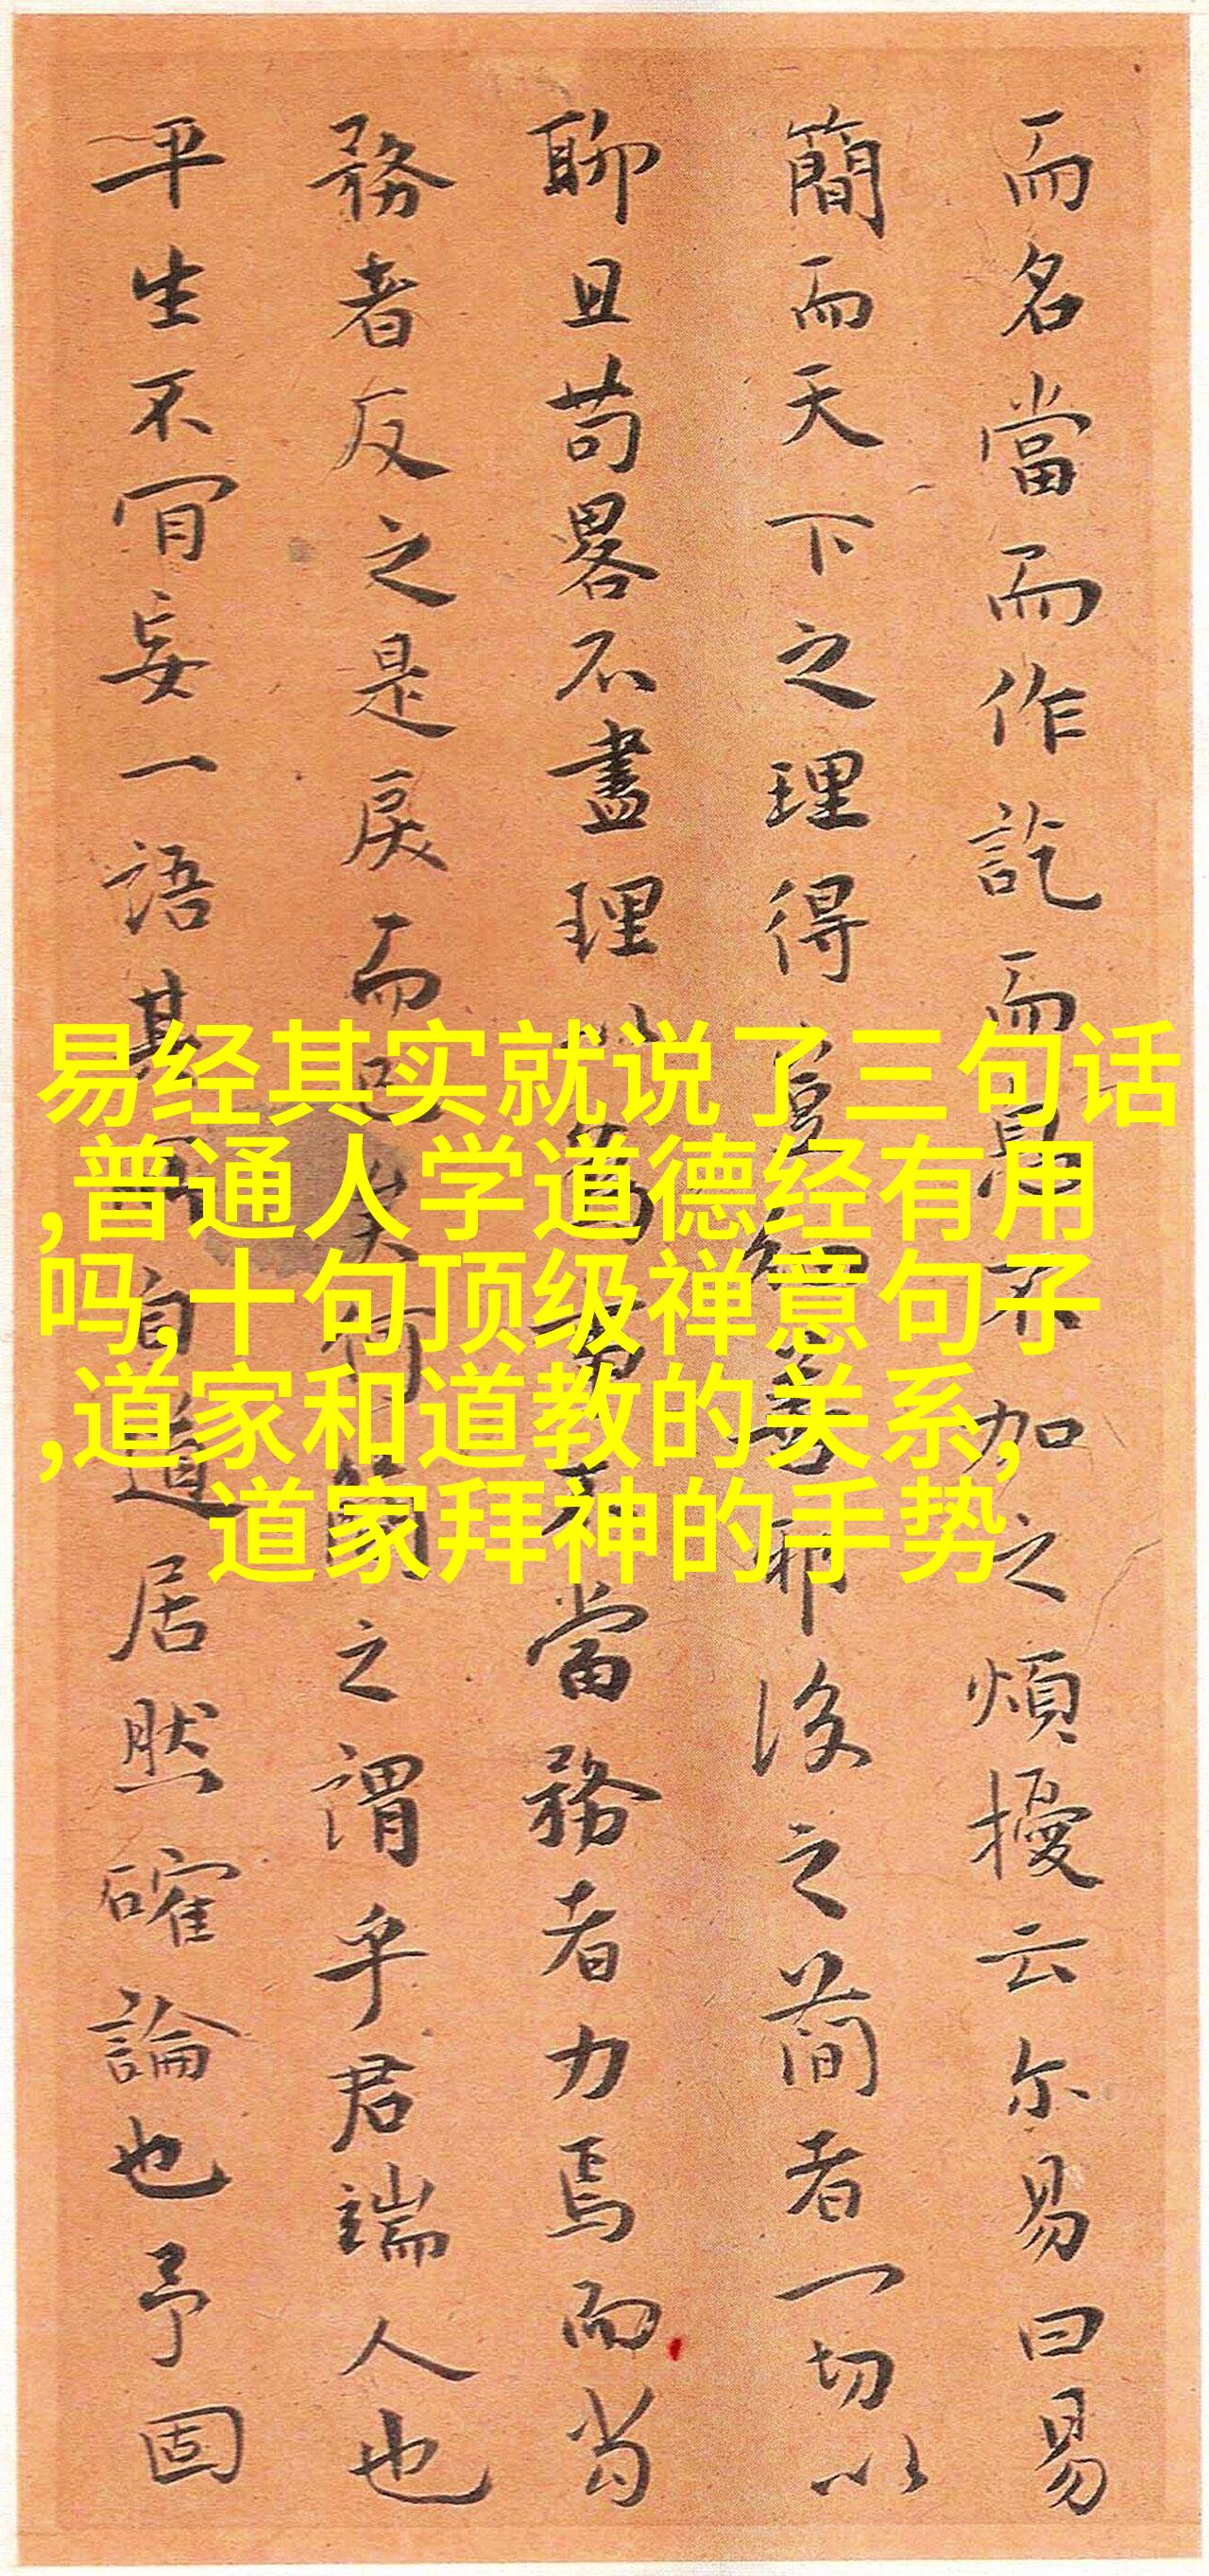 而名當而作訖而
不加之煩擾云尔易曰易
簡而天下之理得
耶後之简者一切以
聊且苟畧不盡理
當務者力焉而苟
務者反之是戾而已矣
之謂乎君端人也
平生不肎妄一語其
自道居然確論也予固
易经其实就说了三句话
,普通人学道德经有用
吗,十句顶级禅意句子
,道家和道教的关系,
道家拜神的手势